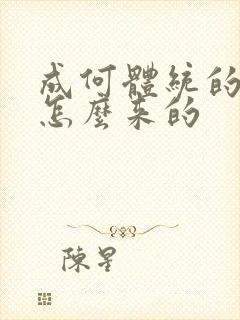 成何體統的
怎麼來的
陳星